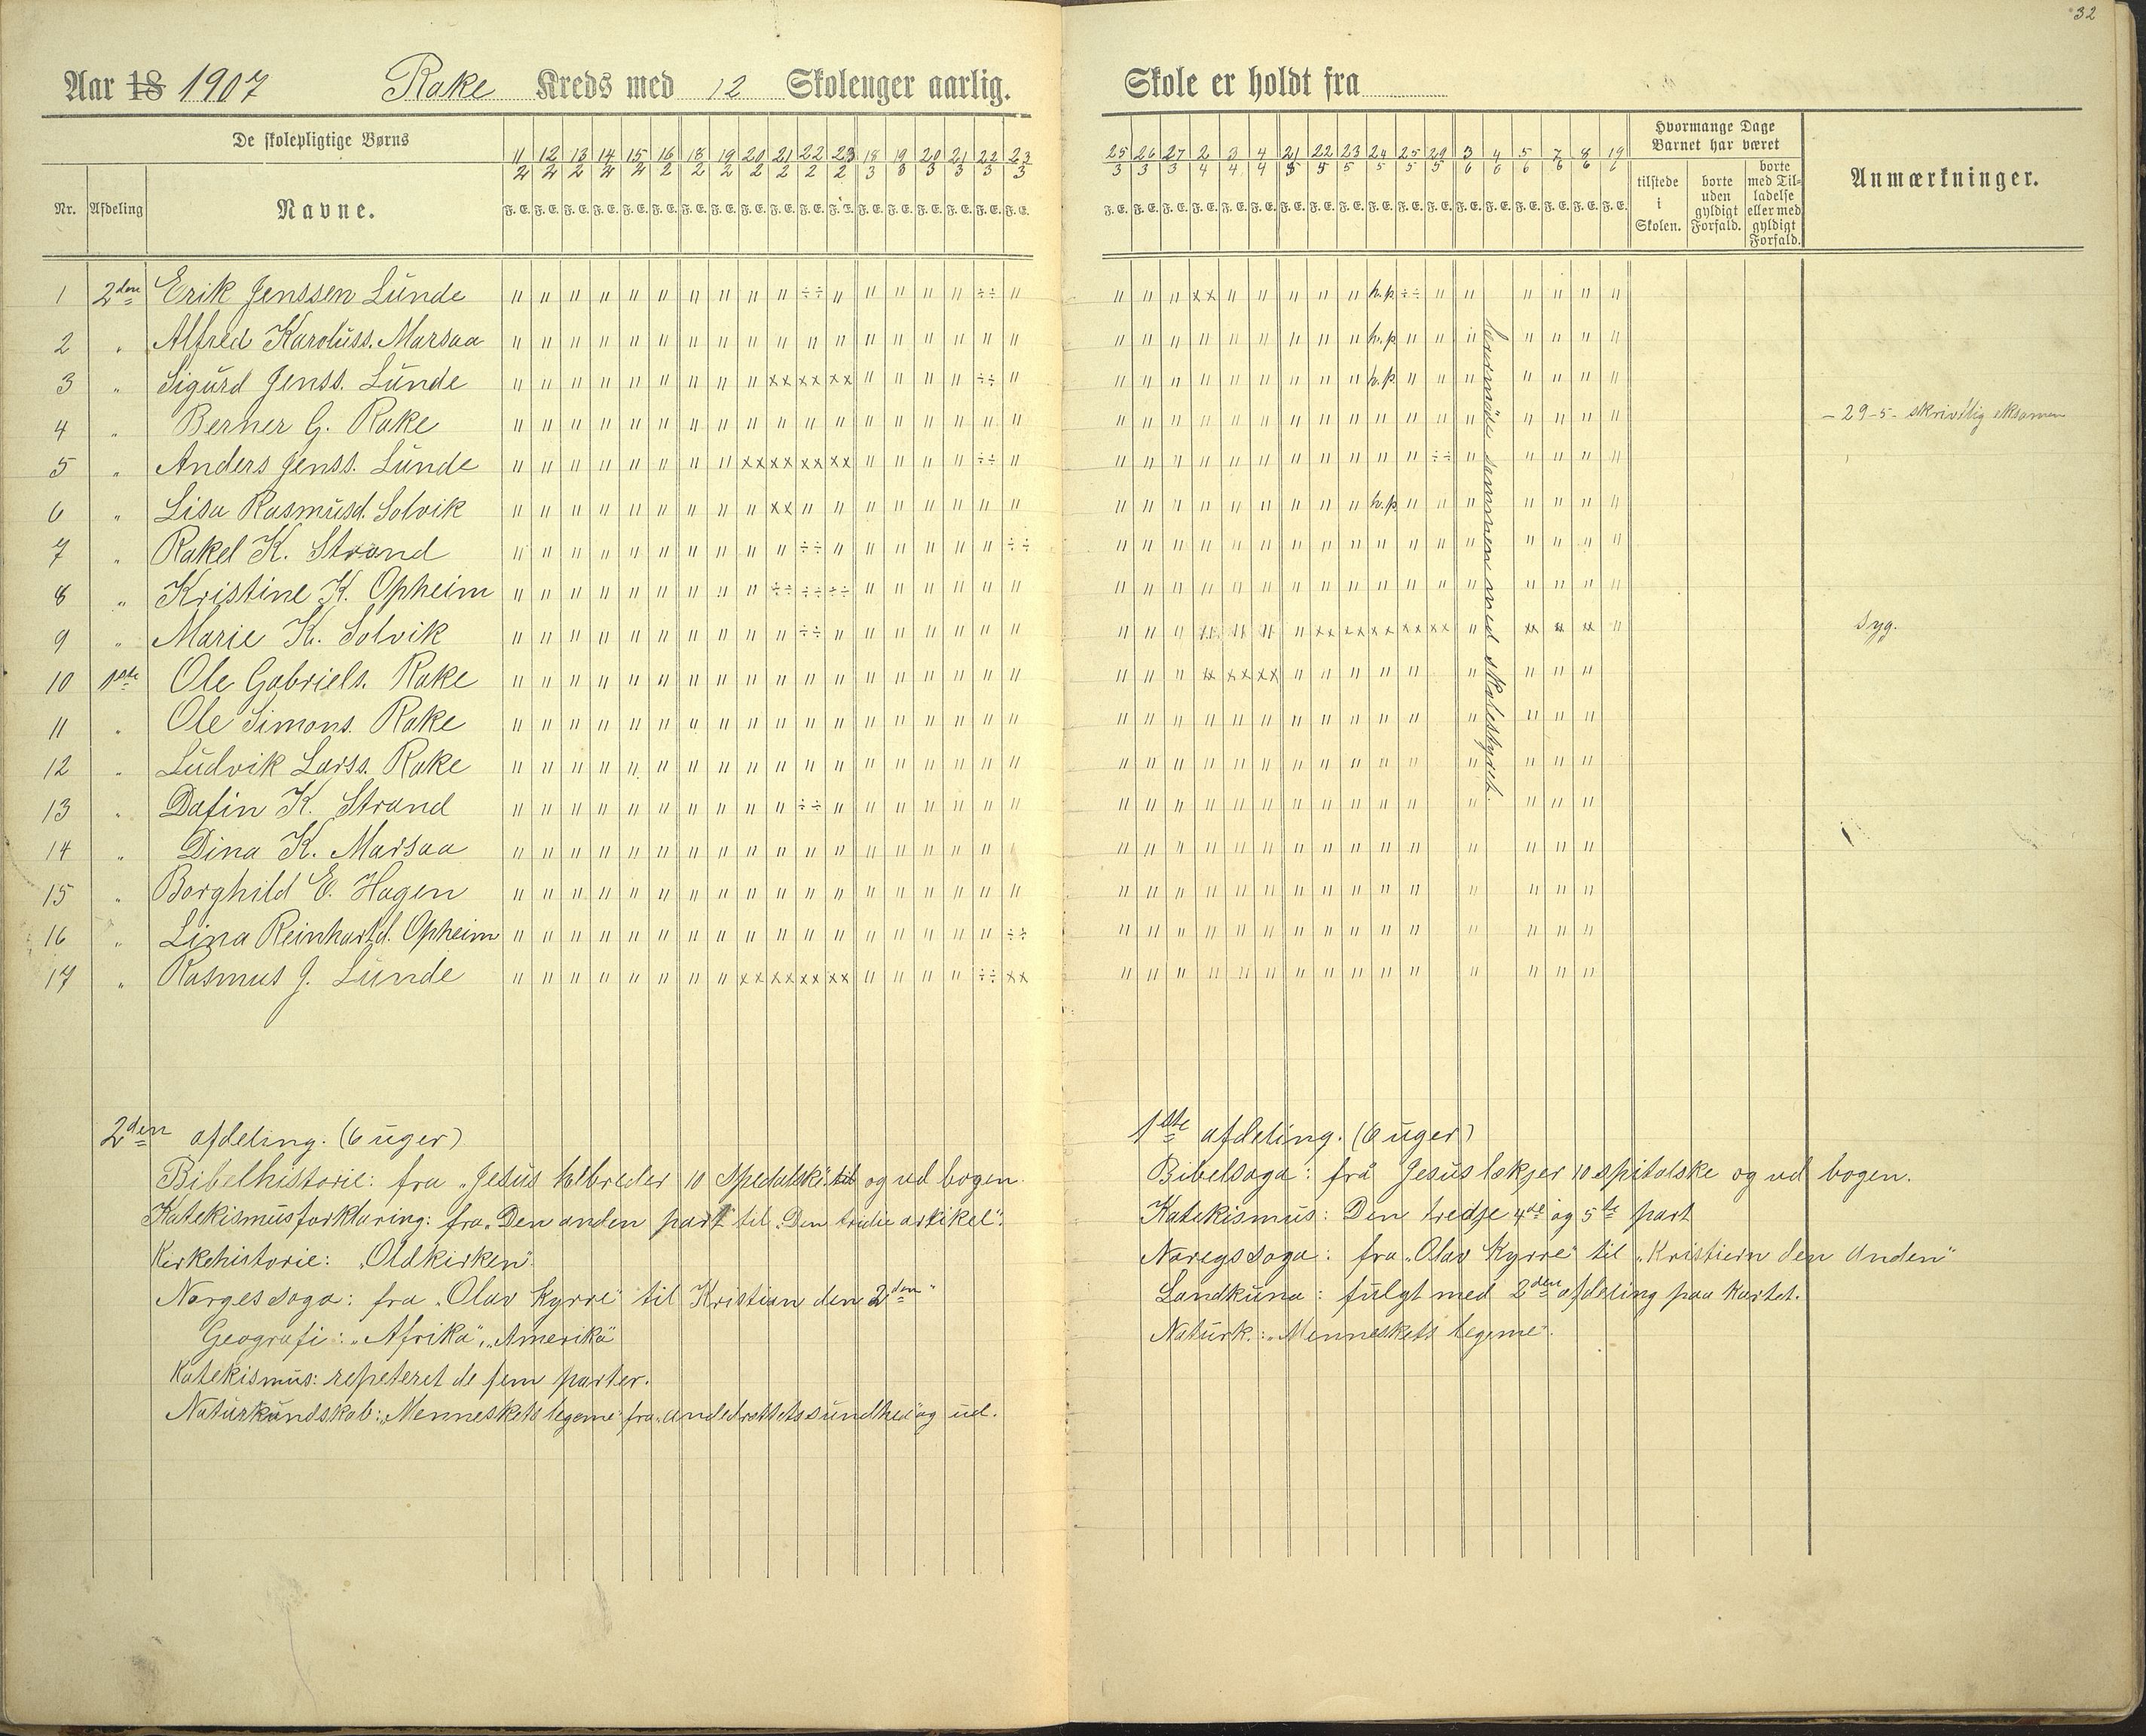 32
Aar 18 1907 Rake Kreds med 12 Skoleuger aarlig.
De skolepligtige Børns
Nr. Afdeling Navne.
11/2 12/2 13/2 14/2 15/2 16/2 18/2 19/2 20/2 21/2 22/2 23/2 18/3 19/3 20/3 21/3 22/3 23/3
F. E. F. E. F. E. F. E. F. E. F. E. F. E. F. E. F. E. F. E. F. E. F. E. F. E. F. E. F. E. F. E. F. E. F. E.
1 2den Erik Jenssen Lunde
2 " Alfred Karoluss. Marsaa
3 " Sigurd Jenss. Lunde
4 " Berner G. Rake
5 " Anders Jenss. Lunde
6 " Lisa Rasmusd. Solvik
7 " Rakel K. Strand
8 " Kristine K. Opheim
9 " Marie K. Solvik
10 1ste Ole Gabriels. Rake
11 " Ole Simons. Rake
12 " Ludvik Larss. Rake
13 " Dafin K. Strand
14 " Dina K. Marsaa
15 " Borghild E. Hagen
16 " Lina Reinhartd. Opheim
17 " Rasmus J. Lunde
2den afdeling. (6 uger)
Bibelhistorie: fra "Jesus helbreder 10 spedalske" til og ud bogen.
Katekismusforklaring: fra "Den anden part til "Den tredie artikel".
Kirkehistorie: "Oldkirken".
Norges soga: fra "Olav Kyrre" til Kristian den 2den"
Geografi: "Afrika", "Amerika"
Katekismus: repeteret de fem parter.
Naturkundskab: "Menneskets legeme" fra "Aandedrættets sundhed" og ud.
Skole er holdt fra
25/3 26/3 27/3 2/4 3/4 4/4 21/5 22/5 23/5 24/5 25/5 29/5 3/6 4/6 5/6 7/6 8/6 19/6
F. E. F. E. F. E. F. E. F. E. F. E. F. E. F. E. F. E. F. E. F. E. F. E. F. E. F. E. F. E. F. E. F. E. F. E.
Hvormange Dage
Barnet har været
tilstede i Skolen.
borte uden gyldigt Forfald.
borte med Til-ladelse eller med gyldigt Forfald.
Anmærkninger.
h.p.
h.p.
h.p.
h.p.
lærermøde sammen med skolestyret.
- 29-5- skrivtlig eksamen
syg.
1ste afdeling. (6 uger)
Bibelsoga: frå Jesus lækjer 10 spitalske og ud bogen.
Katekismus: Den tredje 4de og 5te part
Noregs soga: fra "Olav Kyrre" til "Kristiern den Anden"
Landkuna: fulgt med 2den afdeling paa kartet.
Naturk.: "Menneskets legeme".